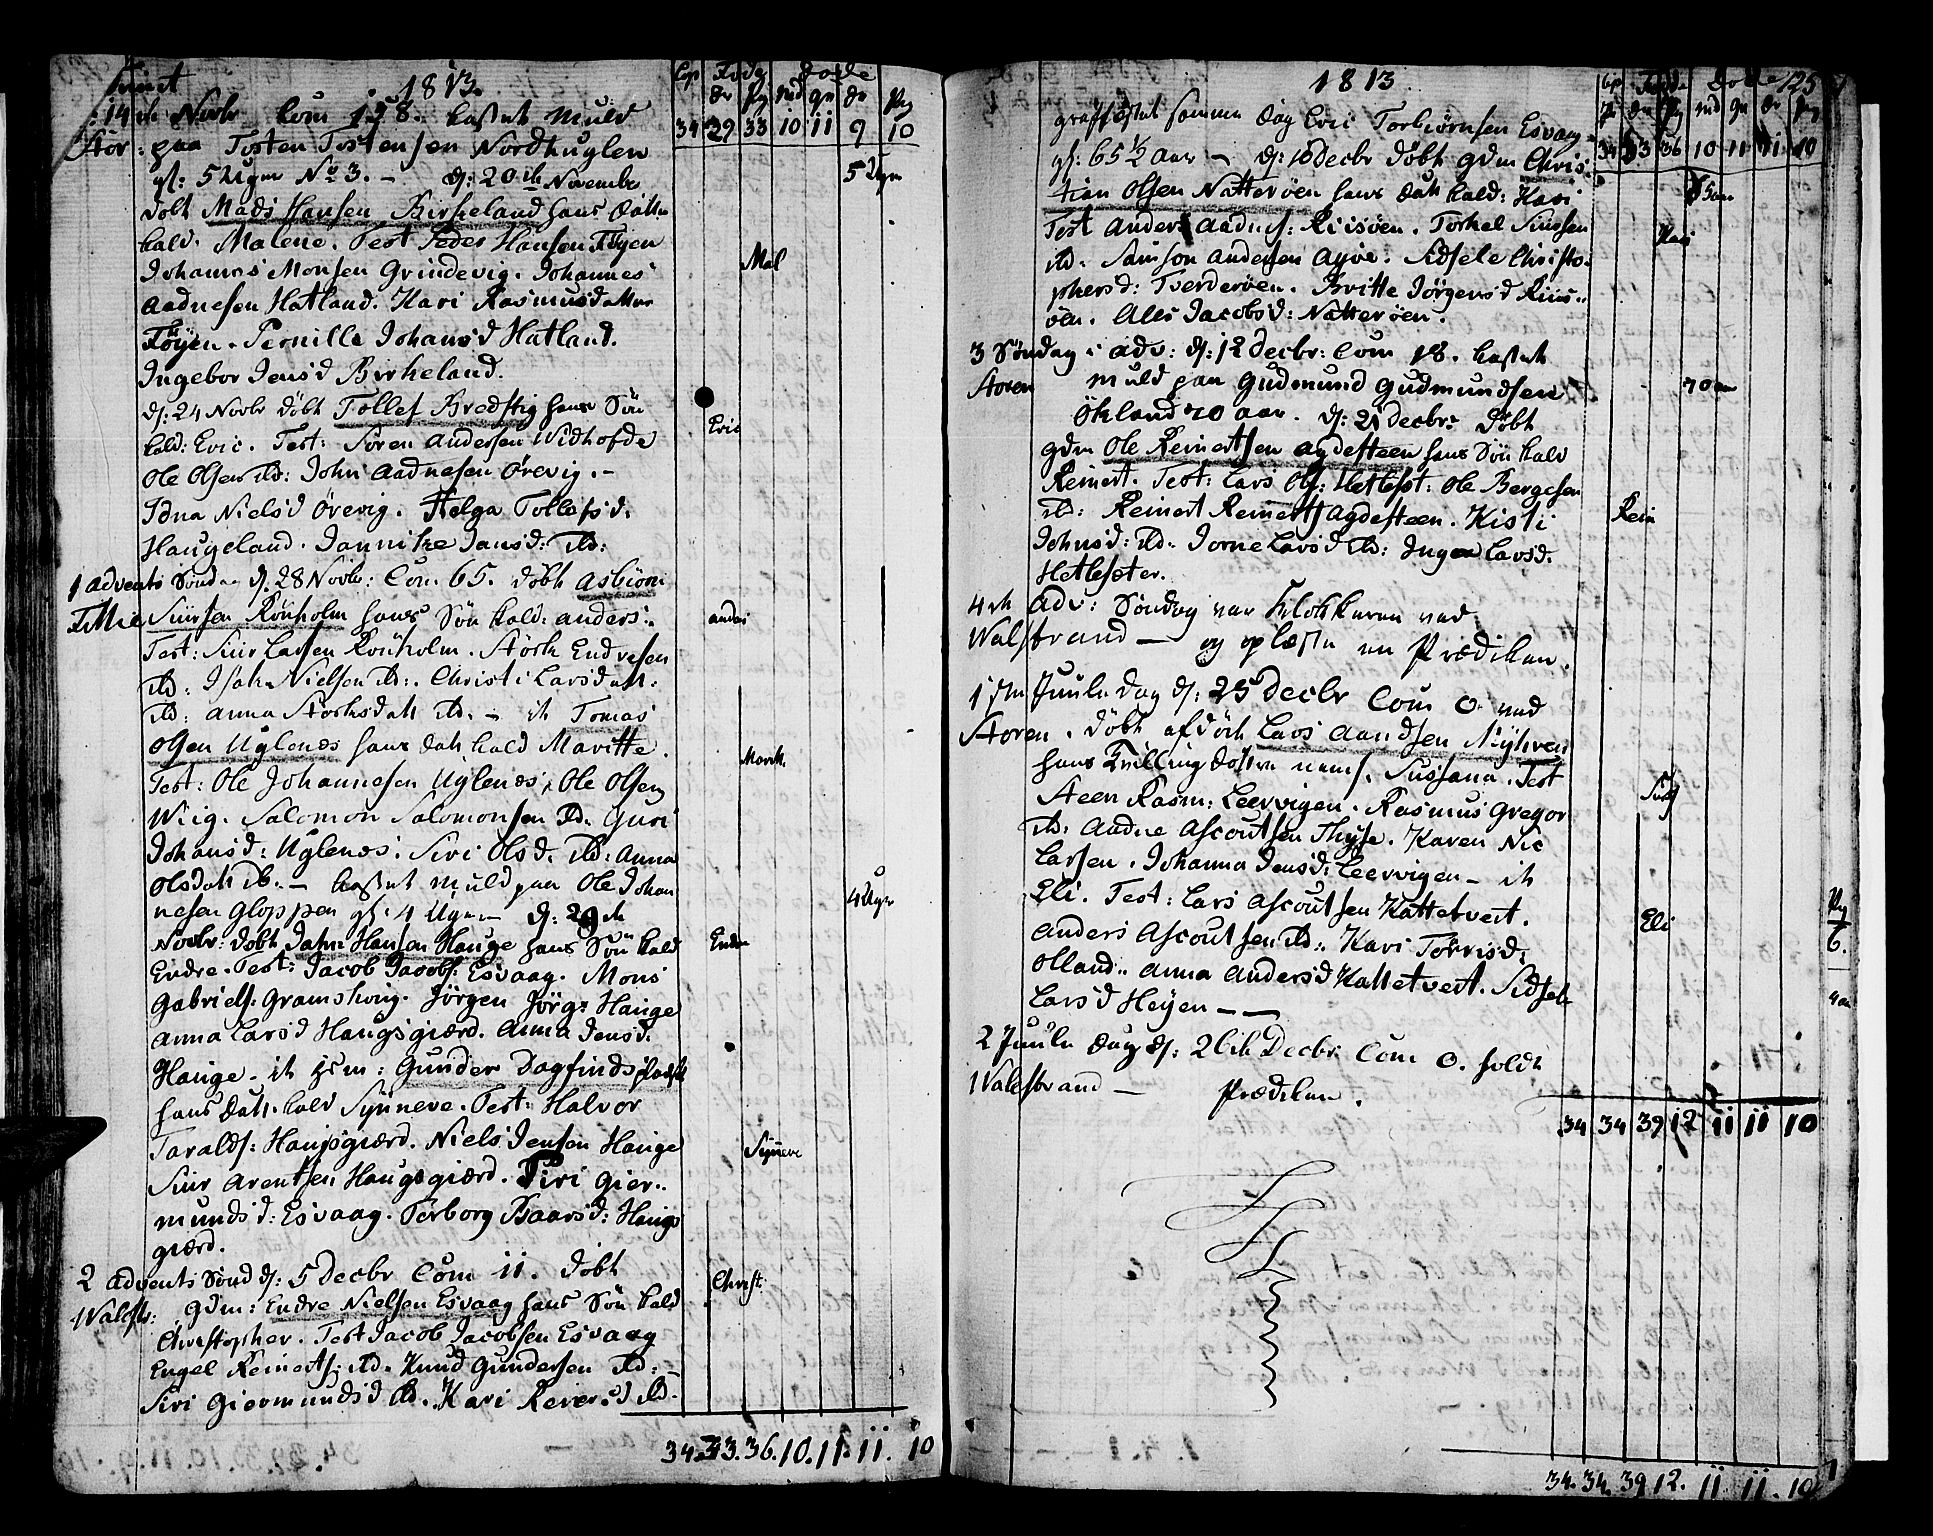 1813.
14de Novbr Com 158. kastet Muld
Stor: paa Tosten Tostensen Nordhuglen
gl: 5 Uger No 3. — d: 20th November
döbt Mads Hansen Birkeland hans datter
kald. Malene. Test Peder Hansen Föyen
Johannes Monsen Grindevig. Johannes
Aadnesen Hatland. Kari Rasmusdatter
Föyen. Pernille Johansd Hatland.
Ingebor Jensd Birkeland.
d: 24 Novbr döbt Tollef Bredstig hans Sön
kald: Eric. Test: Sören Andersen Widhofde
Ole Olsen ibd: John Aadnesen Örevig. -
Nielsd Örevig. Helga Tollefsd.
Haugeland. Jannike Jansd: ibd:
1 Advents Söndag d. 28 Novbr: Com 65. döbt Asbiörn
Fittie Siursen Rönholm hans Sön kald: Anders.
Test: Siur Larsen Rönholm. Störk Endresen
ibd: Nielsen ibd: Christi Larsdatt:
ibd: Anna Storksdatt ibd. - it Tomas
Olsen Uglenes hans datt kald Maritte.
Test: Ole Johannesen Uglenes, Ole Olsen
Wiig. Salomon Salomonsen ibd. Guri
Johansd: Uglenes. Siri Olsd. ibd: Anna
Olsdatt ib. - kastet Muld paa Ole Johan
nesen Gloppen gl: 4 Uger — d: 29de
Novbr: döbt Hansen Hauge hans Sön kald
Endre. Test: Jacob Jacobs: Esvaag. Mons
Gabriels. Gramshoug. Jörgen Jörg: Hauge
Anna Larsd Haugsgiærd. Anna Jensd.
Hauge. it hiem: Gunder Dagfinds
hans datt. kald Synneve. Test: Halvor
Taralds: Haugsgiærd. Niels Jensen Hauge
Siur Arentsen Haugsgiærd. Siri Gier-
mundsd: Esvaag. Torborg Baarsd: Haugs
giærd.
2 Advents Sönd d: 5 Decbr Com 11. döbt
Walestr: gdm: Endre Nielsen Esvaag hans Sön kald
Christopher. Test Jacob Jacobsen Esvaag
Engel Reinerts: ibd. Knud Gundersen ibd:
Siri Giermundsd ibd. Kari Reversd ibd.
Cop Födde Döde
dr pg md qv dr pg
34 29 33 10 11 9 10
5 Uger
Mal
Eric
Anders
Marit.
4 Uger
Endre
Synneve
Christ.
34. 33. 36. 10. 11. 11. 10
1813.
graffæstet samme dag Eric Torbiörnsen Esvaag
gl: 65 1/2 Aar — d: 10 Decbr döbt gdm Chris-
tian Olsen Natteröen hans datt kald: Kari
Test Anders Aadnes: Riisöen. Torkel Siursen
ibd. Samson Andersen Ayve. Sidsele Christo-
phersd: Tverderöen. Britte Jörgensd Riis-
öen. Ales Jacobsd: Natteröen.
3 Söndag i Adv: d: 12 Decbr: Com 18. kastet
Storen Muld paa Gudmund Gudmundsen
Ökland 70 Aar. d: 21 Decbr: döbt
gdm Ole Reinertsen Agdesteen hans Sön kald
Reinert. Test: Lars Ols: Hetleset: Ole Bergesen
ibd: Reinert Reinerts Agdesteen. Kisti
Johnsd: ibd. Jorne Larsd ibd: Larsd.
Hetlesæter.
4de Adv: Söndag var Klokkeren ved
Walestrand — og oplæste en Prædiken.
1ste Juule Dag d: 25 Decbr Com 0 ved
Storen. döbt Lars Aandsen Nÿhven
hans Tvilling döttre nemf. Sussana. Test
Steen Rasm: Leervigen. Rasmus Gregor
ibd: Aadne Ascoutsen Thyse. Karen Nic
Larsen. Johanna Jensd: Leervigen - it
Eli. Test: Lars Ascoutsen Kattetveit.
Anders Ascoutsen ibd: Kari Torrisd.
Olland. Anna Andersd Kattetveit. Sidsel
Larsd Heyen — —
2 Juule Dag d: 26th Decbr Com 0. holdt
Walestrand — Prædiken.
125
Cop Födde Döde
pr dr pg md qv dr pg
34 33 36 10 11 11 10
Kari
70 aar
Rein
Suss
Eli
34 34 39 12 11 11 10
34. 34. 39 12. 11 11. 10
pg
6.